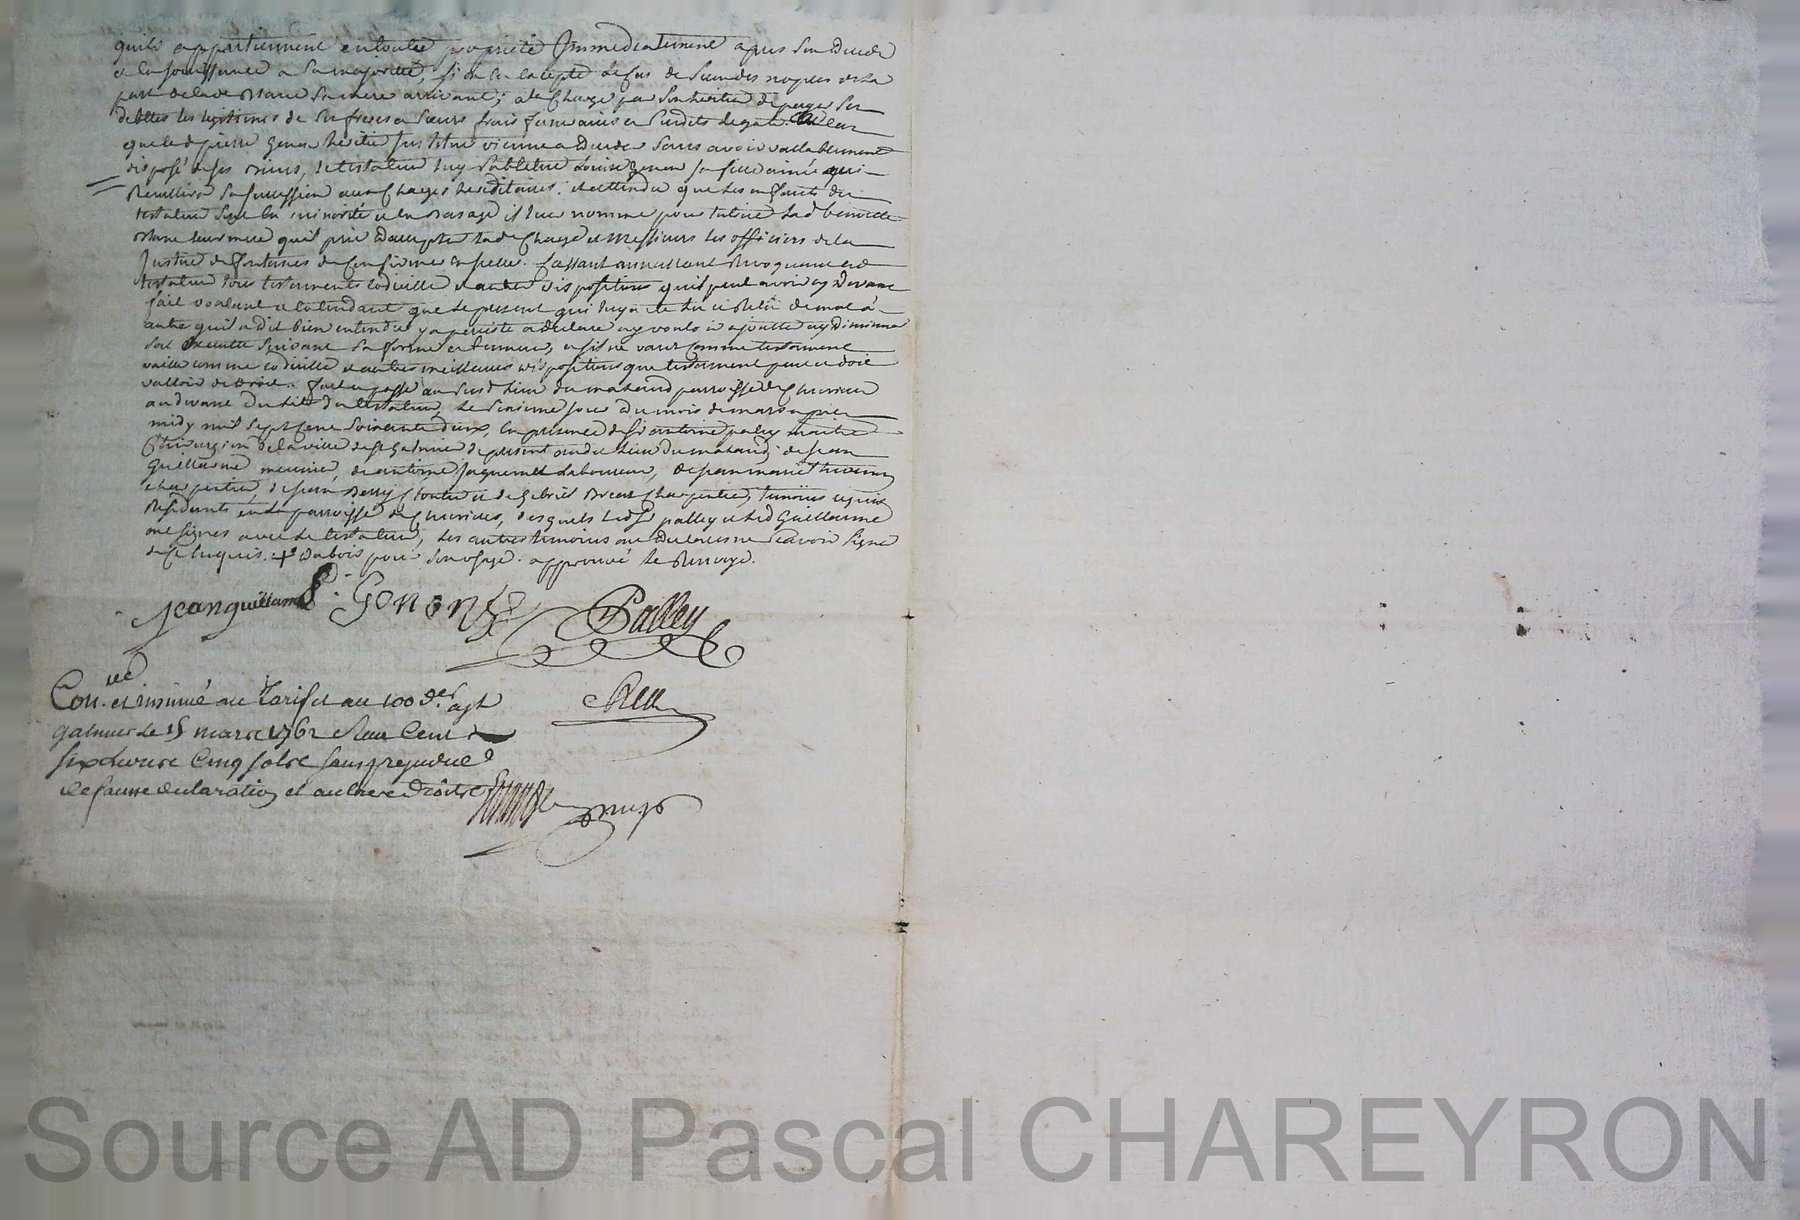 quils appartiennent en toutte propriété Immediatement apres son deces
et la jouissance a sa majorité, si ce en cas de secondes nopces de la
part de lad Marie sa mere arrivant; a la charge par son heritier de payer ses
debttes les legitimes de ses freres et sœurs frais funeraires et susdits legats. Au cas
que led pierre Genon heritier institué vienne a deceder sans avoir vallablement
disposé de ses biens, le testateur luy substitue Louise Genon sa fille ainée qui
Recueillira sa succession aux charges hereditaires. et attendu que les enfants du
testateur sont en minorité et en bas age il leur nomme pour tutrice lad benoitte
Marie leur mere quil prie d'accepter lad charge et Messieurs les officiers de la
Justice de fontanes de confirmer en icelle. Cassant annullant Revoquant led
testateur tous testaments codicille et autres dispositions quil peut avoir cy devant
fait voulant et entendant que le present qui luy a été lu et Relu de mot à
autre quil a dit bien entendre y a persisté a declaré ny vouloir ajoutter ny diminuer
soit executté suivant sa forme et teneur, et sil ne vaut comme testament
vaille comme codicille et autres meilleures dispositions que testament peut et doit
valloir de droit. fait et passé au susd lieu du parroisse de Chevrieres
au devant du lit du testateur, le seizieme jour du mois de mars apres
midy mil sept cent soixante deux, en presence de Sr antoine palley maitre
Chirurgien de la ville de St Galmier de present aud lieu de Jean
Guillaume meunier, de antoine Jaquemet Laboureur, de Jean marie
charpentier, de Jean et de Gabriel charpentier, temoins requis
Residents en la parroisse de Chevrieres, desquels led Sr palley et led Guillaume
ont signés avec le testateur, les autres temoins ont declarés ne sçavoir signer
de ce enquis. + du bois pour son usage. approuvé le Renvoye.
Jean guillaume P. Genon Palley
Con. et insinué au tarif et au 100 der. a St
galmier le 15 mars 1762 Reçu Cent
six livres Cinq sols sans prejudice
de fausse declaration et autres droits
Source AD Pascal CHAREYRON